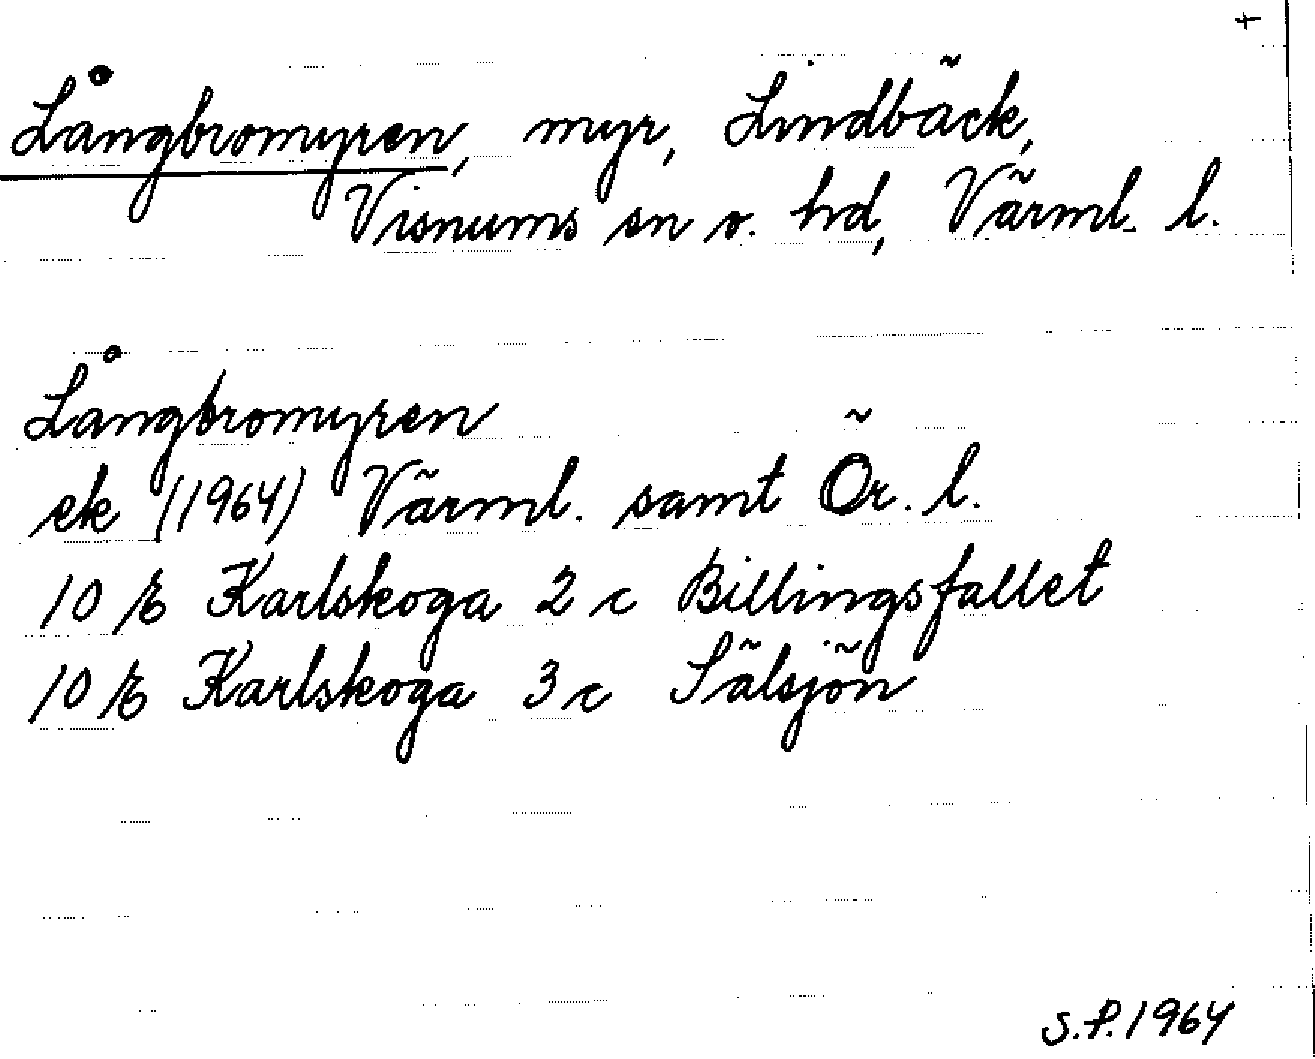 +
Långbromyren, myr, Lindbäck,
Visnums sn o. hd, Värml. l.
Långbromyren
ek (1964) Värml. samt Ör. l.
10 E Karlskoga 2 c Billingsfallet
10 E Karlskoga 3 c Sälsjön
S.P. 1964